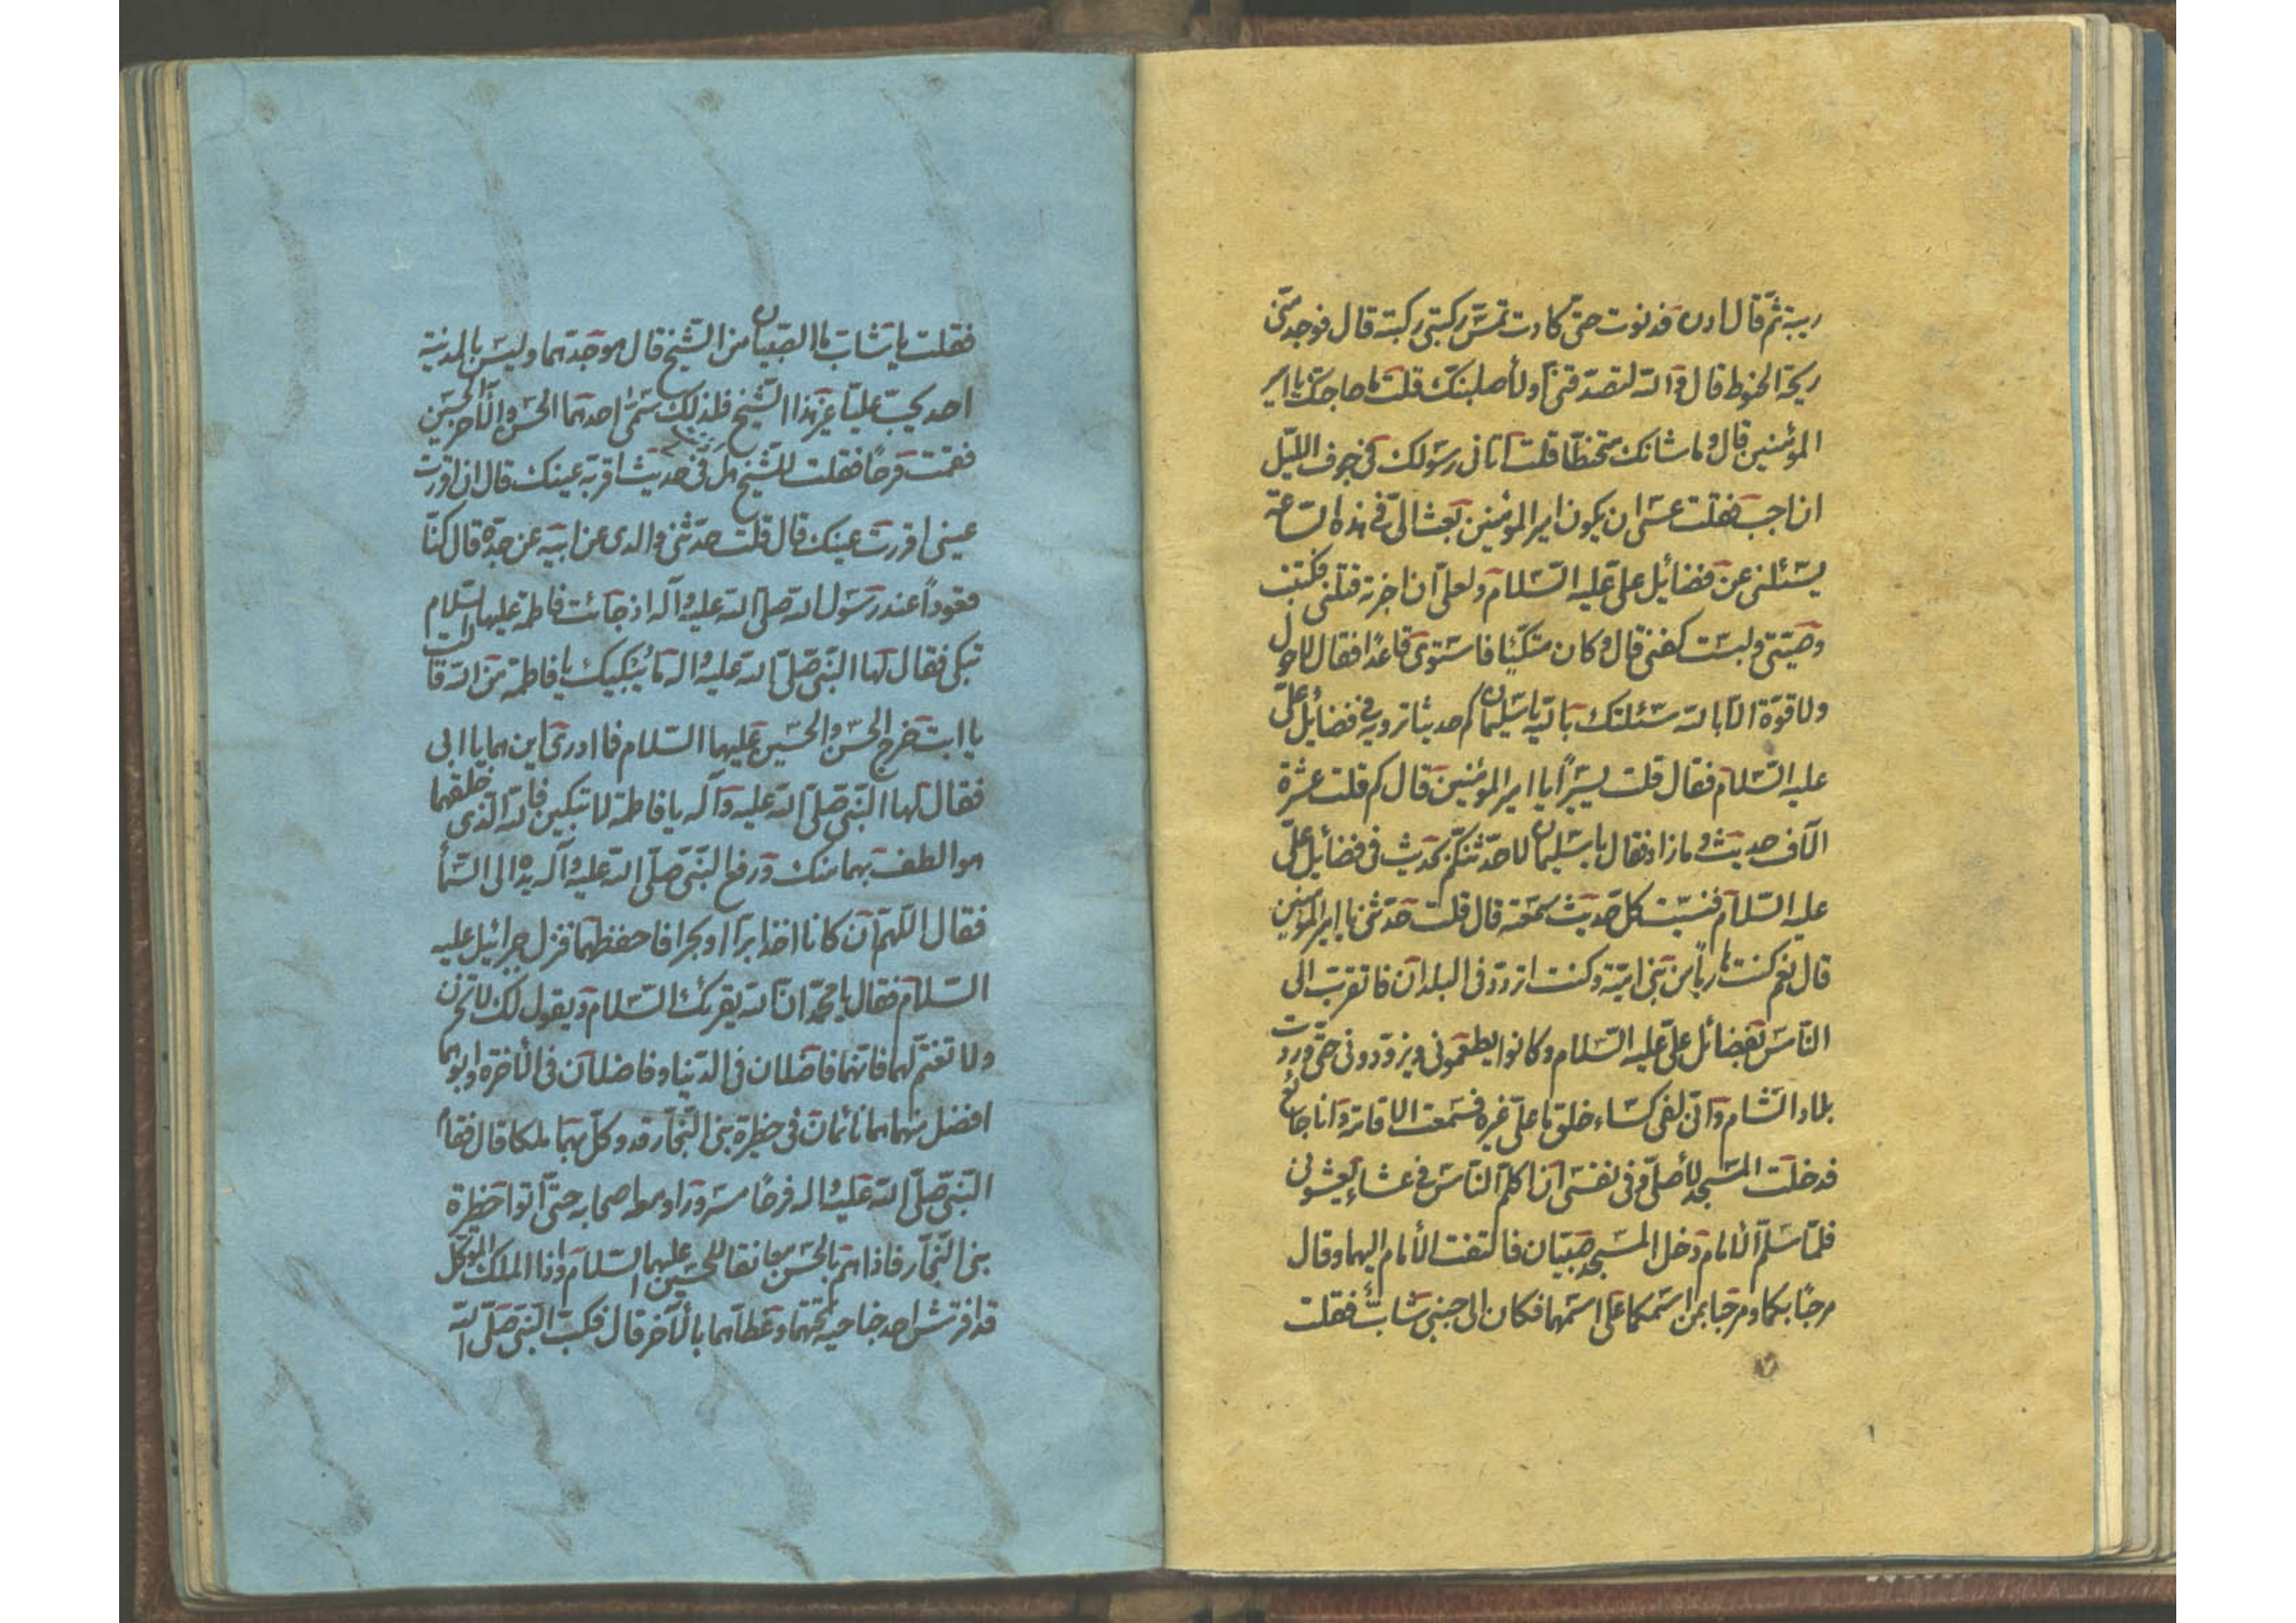 ريبة ثمّ قال ادن فدنوت حتّى كادت تمسّ ركبتى ركبته قال فوجد منّى
ريحة الحنوط قال والله لتصدقنّى او لأصلبنّك قلت ما حاجتك يا امير
المؤمنين قال وما شانك متحنطا قلت اتانى رسولك فى جوف اللّيل
ان اجب فقلت عسى ان يكون امير المؤمنين بعث الىّ فى هذه السّاعة
يسئلنى عن فضائيل علىّ عليه السّلام ولعلّى ان اخبرته قتلنى فكتبت
وصيّتى ولبست كفنى قال وكان متّكئا فاستوى قاعدًا فقال لا حول
ولا قوّة الّا بالله سئلتك بالله يا سليمان كم حديثا ترويه فى فضائيل علىّ
عليه السّلام فقال قلت يسيرًا يا امير المؤمنين قال كم قلت عشرة
آلاف حديث وما زاد فقال يا سليمان لاحدّثنّكم بحديث فى فضائيل علىّ
عليه السّلام فنسيت كلّ حديث سمعته قال قلت حدّثنى يا امير المؤمنين
قال نعم كنت هاربًا من بنى اميّة وكنت اتردّد فى البلدان فاتقرب الى
النّاس بفضائل علىّ عليه السّلام وكانوا يطعمونى ويزودونى حتّى وردت
بلاد الشّام وانّى لفى كساء خلق ما علىّ غيره فسمعت الاقامة وانا جائع
فدخلت المسجد لأصلّى وفى نفسى ان اكلّم النّاس فى عشاء يعشونى
فلمّا سلّم الأمام دخل المسجد صبيّان فالتفت الأمام اليهما وقال
مرحبًا بكما ومرحبا بمن اسمكما على اسمهما فكان الى جنبى شابّ فقلت
فقلت يا شابّ ما الصّبيان من الشّيخ قال هو جدّهما وليس بالمدينة
احد يحبّ عليّا غير هذا الشّيخ فلذلك سمّى احدهما الحسن والآخر الحسين
فقمت فرحًا فقلت للشّيخ هل فى حديث اقرّ به عينك قال ان اقررت
عينى اقررت عينك قال قلت حدّثنى والدى عن ابيه عن جدّه قال كنّا
قعودًا عند رسول الله صلّى الله عليه وآله اذ جائت فاطمة عليها السّلام
تبكى فقال لها النّبى صلّى الله عليه واله ما يبكيك يا فاطمة من الله قالت
يا ابت خرج الحسن والحسين عليهما السّلام فما ادرى اين هما يا ابى
فقال لها النّبى صلّى الله عليه وآله يا فاطمة لا تبكين فالله الّذى خلقهما
هو الطف بهما منك ورفع النّبى صلّى الله عليه وآله يده الى السّمأ
فقال اللّهمّ ان كانا اخذا برّا او بحرا فاحفظهما فنزل جبرائيل عليه
السّلام فقال يا محمّد انّ الله يقرئك السّلام ويقول لك لا تحزن
ولا تغتمّ لهما فانّهما فاضلان فى الدّنيا وفاضلان فى الأخرة وابوهما
افضل منهما هما نائمان فى حظيرة بنى النّجّار قد وكّل بهما ملكا قال فقام
النّبى صلّى الله عليه واله فرحًا مسرورا ومعه اصحابه حتّى اتوا حظيرة
بنى النّجّار فاذا هم بالحسن معانقا للحسين عليهما السّلام واذا الملك الموكّل
قد افترش احد جناحيه تحتهما وغطّاهما بالأخر قال فكبّ النّبى صلّى الله